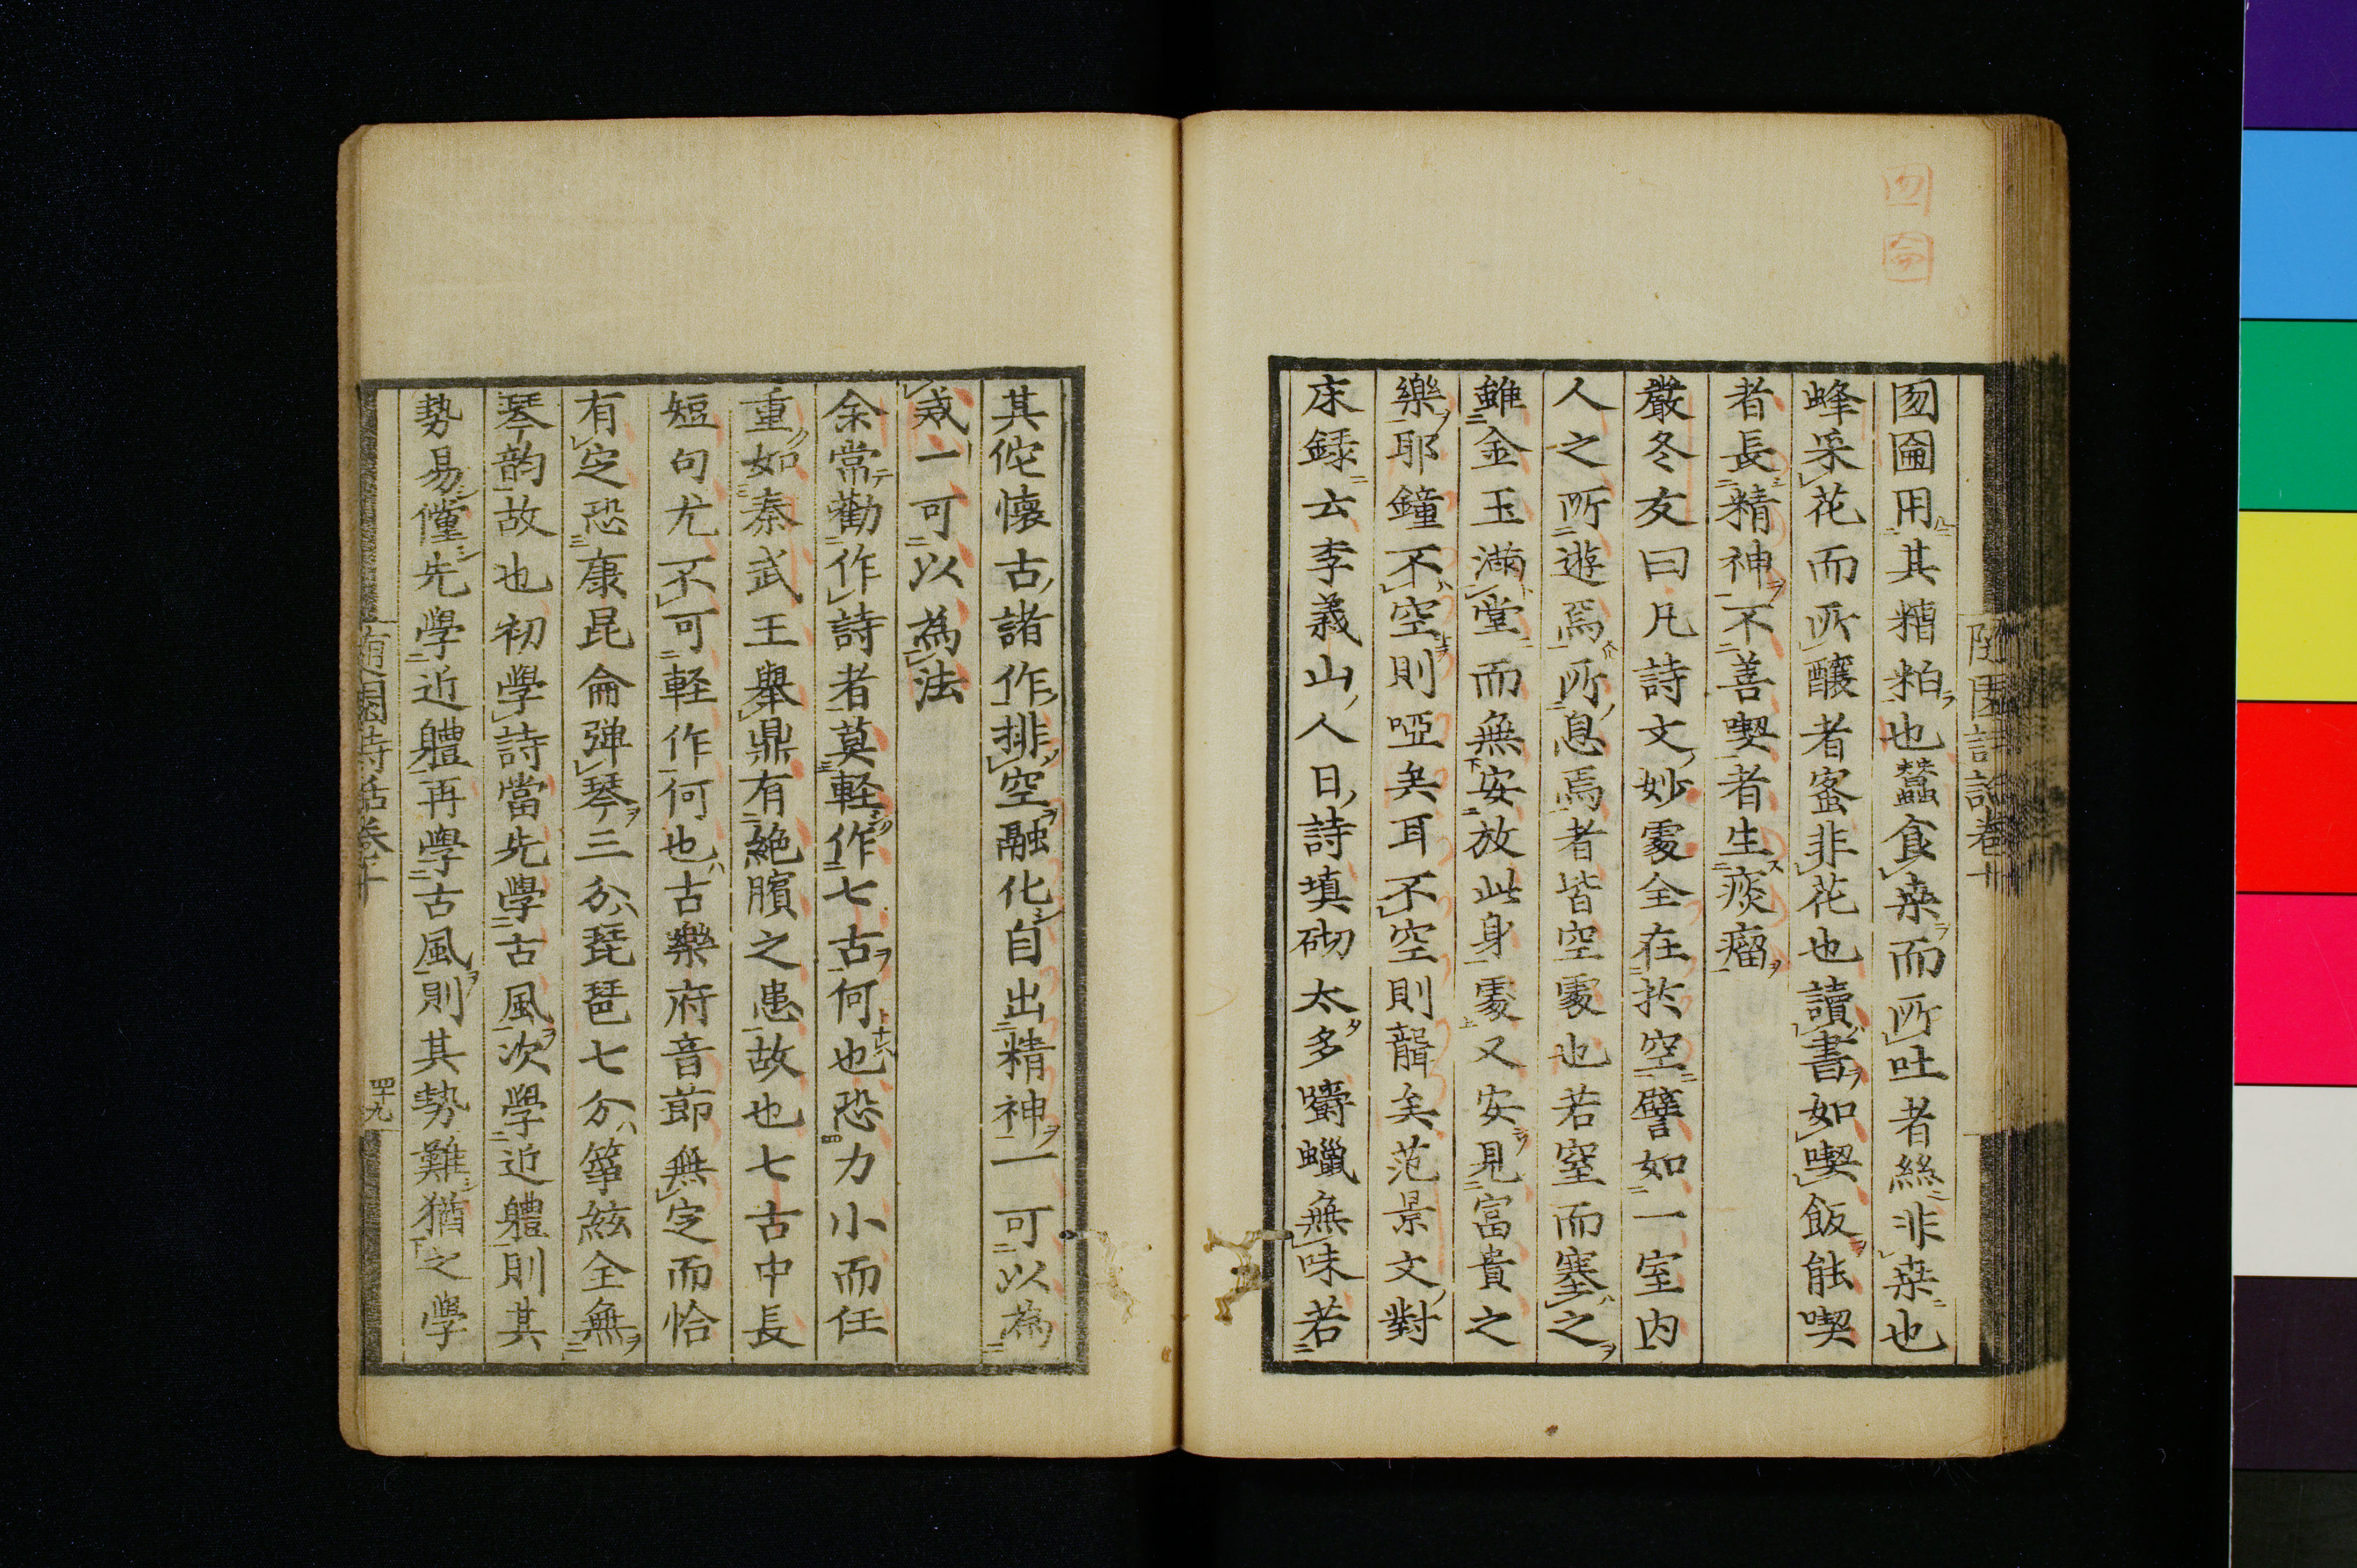 囫圇用其糟粕也蠶食桒而所吐者絲非桒也
蜂采花而所釀者蜜非花也讀書如喫飯能喫
者長精神不善喫者生痰瘤
嚴冬友曰凡詩文妙處全在於空譬如一室内
人之所遊焉所息焉者皆空處也若窒而塞之
雖金玉滿堂而無安放此身處又安見富貴之
樂耶鐘不空則啞矣耳不空則聾矣范景文對
床録云李義山人日詩填砌太多嚼蠟無味若
其佗懷古諸作排空融化自出精神一可以為
戒一可以為法
余常勸作詩者莫軽作七古何也恐力小而任
重如秦武王舉鼎有絶臏之患故也七古中長
短句尤不可軽作何也古樂府音節無定而恰
有定恐康昆侖弾琴三分琵琶七分筝絃全無
琴韵故也初學詩當先學古風次學近體則其
勢易僮先學近軆再學古風則其勢難猶之學
隨園詩話卷十
四十九